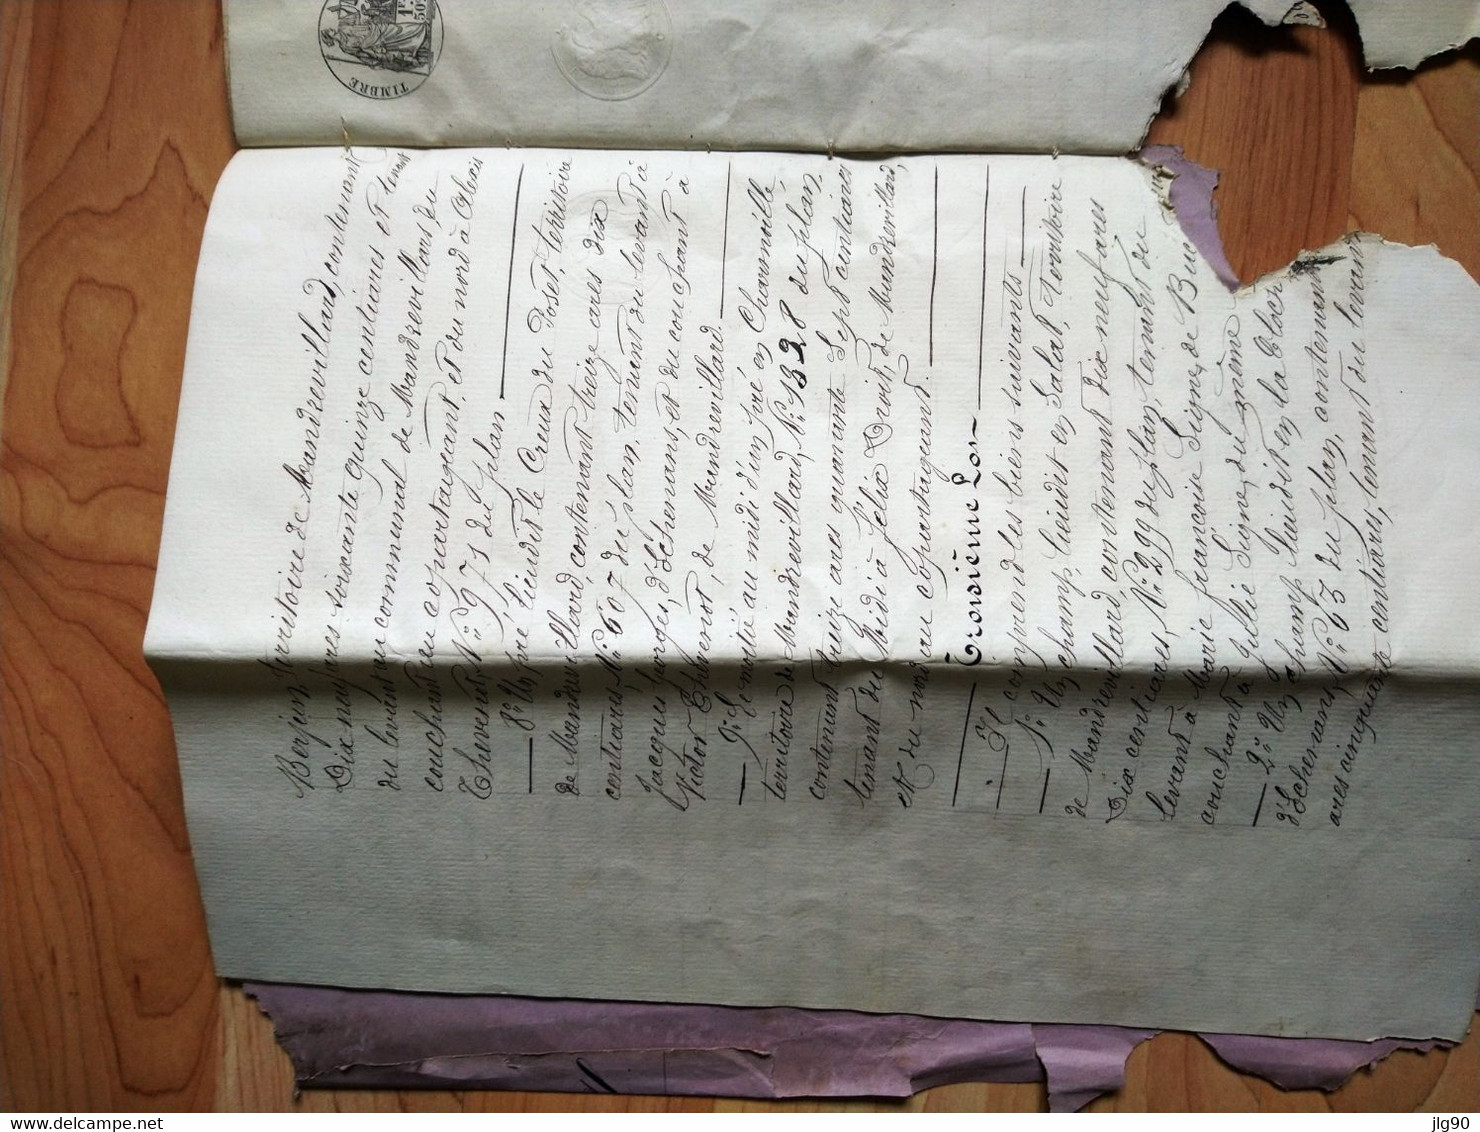 TIMBRE
50c
territoire de Mandrevillard, contenant
Dix neuf ares soixante quinze centiares et tenant
du levant au communal de Mandrevillard, du
couchant au copartageant, et du nord à Alexis
Thevenot, N° 971 du plan.
8° Un pré lieudit le Creux du Poset, territoire
de Mandrevillard, contenant treize ares dix
centiares N° 607 du plan, tenant du levant à
Jacques Georges, d'Echenans, et du couchant à
Victor Thevenot, de Mandrevillard.
9° Le moitié au midi d'un pré en Charmoille
territoire de Mandrevillard, N° 1328 du plan,
contenant treize ares quarante sept centiares
tenant du Midi à Félix Droit, de Mandrevillard,
et du nord au copartageant.
Troisième Lot
Il comprend les biens suivants
1° Un champ, lieudit en Salat, territoire
de Mandrevillard, contenant dix neuf ares
Dix centiares, N° 299 du plan, tenant du
levant à Marie françoise Signe, de Buc
couchant à Julie Signe, du même
2° Un champ lieudit en la
d'Echenans, N° 63 du plan, contenant
ares cinquante centiares, tenant du levant
delcampe.net
jlg90